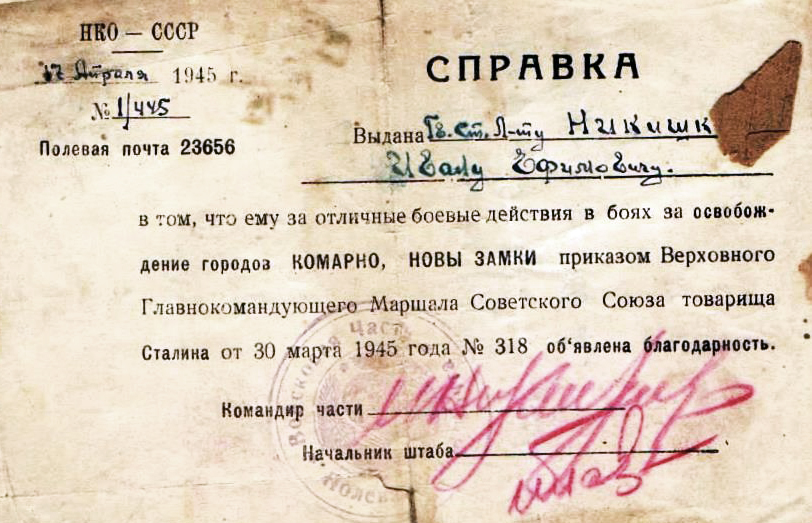 НКО — СССР
17 Апреля 1945 г.
№ 1/445
Полевая почта 23656
СПРАВКА
Выдана Гв. ст. Л-ту Никишк
Ивану Ефимовичу.
в том, что ему за отличные боевые действия в боях за освобож-
дение городов КОМАРНО, НОВЫ ЗАМКИ приказом Верховного
Главнокомандующего Маршала Советского Союза товарища
Сталина от 30 марта 1945 года № 318 об'явлена благодарность.
Командир части
Начальник штаба
Войсковая Часть